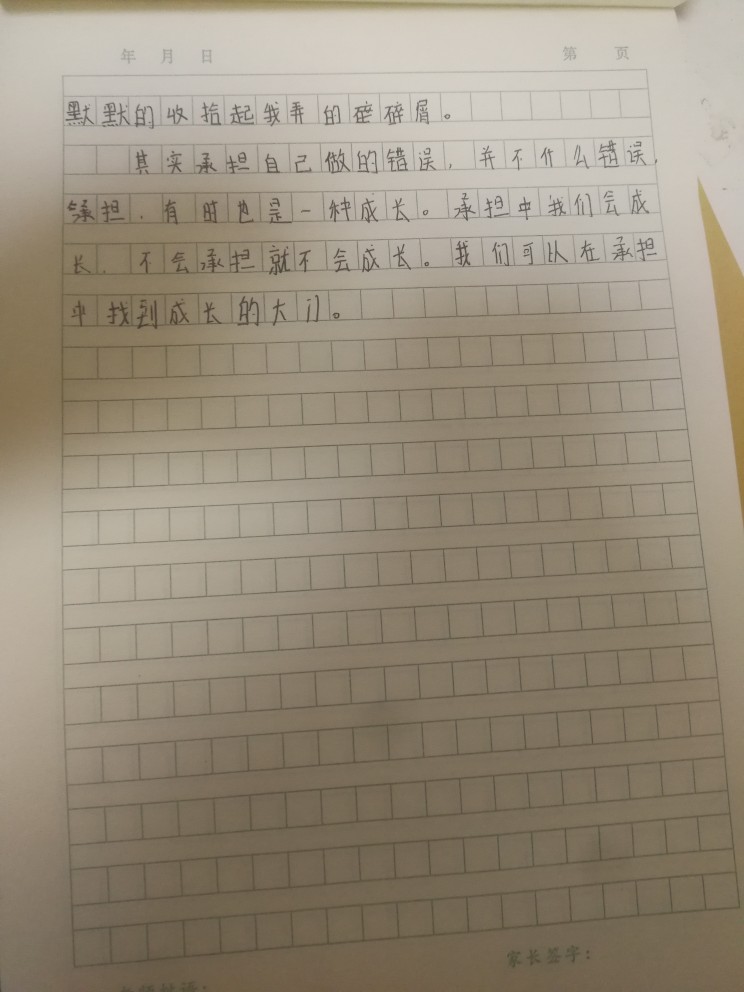 年 月 日 第 页
默默的收拾起我弄的碎碎屑。
其实承担自己做的错误，并不什么错误，
承担，有时也是一种成长。承担中我们会成
长，不会承担就不会成长。我们可以在承担
中找到成长的大门。
家长签字：